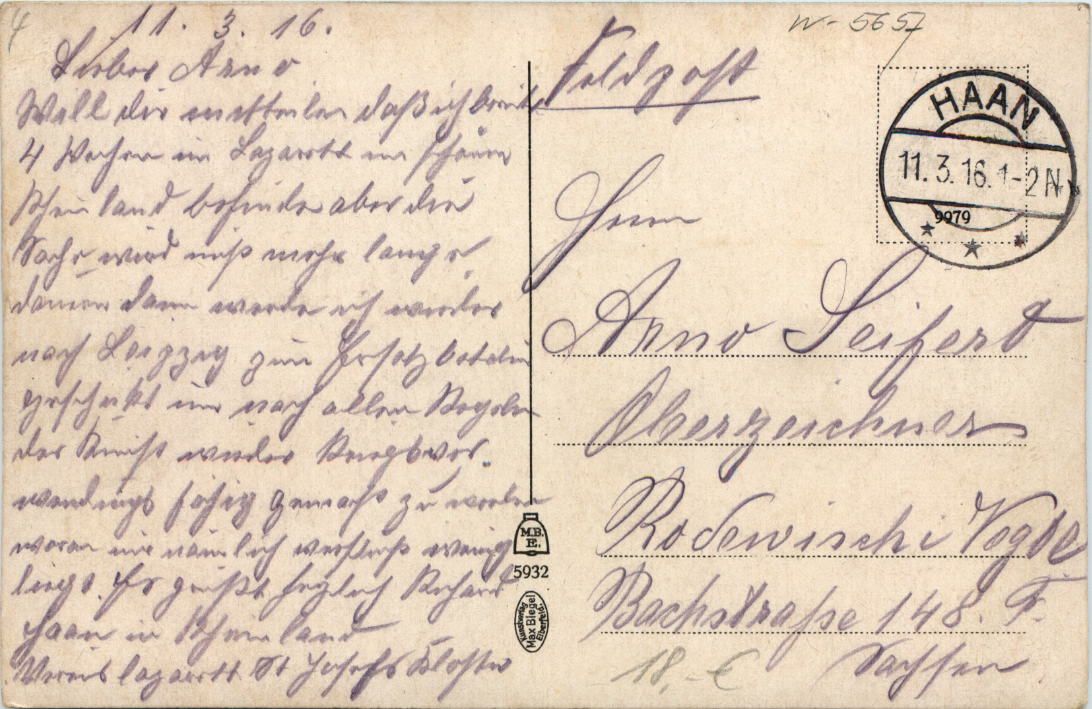 11. 3. 16.
Lieber Arno
Will dir mitteilen daß ich bereits
4 Wochen im Lazarett im schönen
Rheinland befinde aber die
Sache wird nicht mehr lange
dauern dann werde ich wieder
nach Leipzig zum Ersatzbatalion
geschickt um nach allen Regeln
der Kunst wieder Kriegsver-
wendungsfähig gemacht zu werden
woran mir nämlich wenig
liegt. Es grüßt herzlich Richard
Haan in Rheinland
Vereinslazarett St Josefs Kloster
W- 5657
Feldpost
HAAN
11. 3. 16. 1-2 N
9979
Herrn
Arno Seifert
Oberzeichner
Rodewisch i Vogtl
Bachstraße 148. F.
Sachsen
18,- €
M.B.
E.
5932
Kunstverlag
Max Biegel
Elberfeld